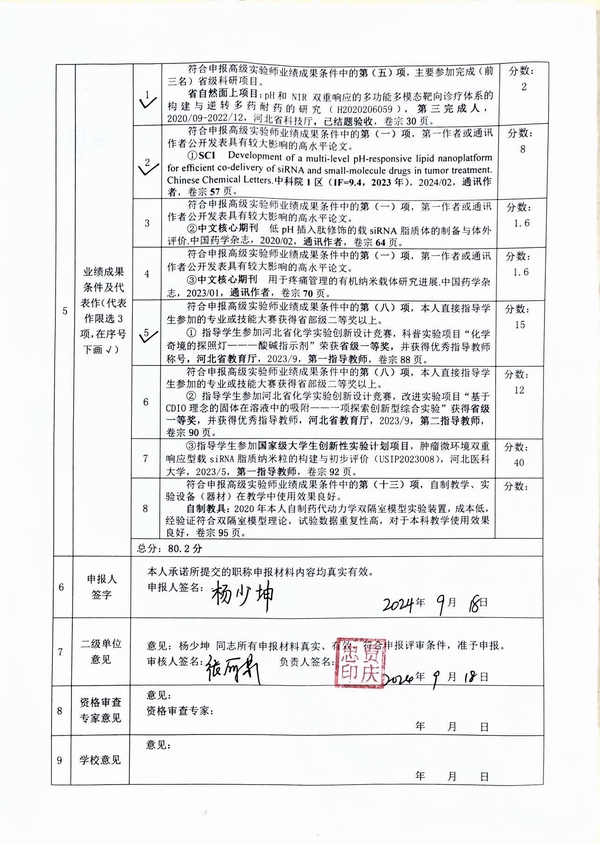 符合申报高级实验师业绩成果条件中的第（五）项，主要参加完成（前
三名）省级科研项目。
省自然面上项目：pH 和 NIR 双重响应的多功能多模态靶向诊疗体系的
构建与逆转多药耐药的研究（H2020206059），第三完成人，
2020/09-2022/12，河北省科技厅，已结题验收，卷宗 30 页。
1
✓
分数：
2
符合申报高级实验师业绩成果条件中的第（一）项，第一作者或通讯
作者公开发表具有较大影响的高水平论文。
①SCI Development of a multi-level pH-responsive lipid nanoplatform
for efficient co-delivery of siRNA and small-molecule drugs in tumor treatment.
Chinese Chemical Letters.中科院 1 区（IF=9.4，2023 年），2024/02，通讯作
者，卷宗 57 页。
2
✓
分数：
8
符合申报高级实验师业绩成果条件中的第（一）项，第一作者或通讯
作者公开发表具有较大影响的高水平论文。
②中文核心期刊 低 pH 插入肽修饰的载 siRNA 脂质体的制备与体外
评价.中国药学杂志，2020/02，通讯作者，卷宗 64 页。
3
分数：
1.6
符合申报高级实验师业绩成果条件中的第（一）项，第一作者或通讯
作者公开发表具有较大影响的高水平论文。
③中文核心期刊 用于疼痛管理的有机纳米载体研究进展.中国药学杂
志，2023/01，通讯作者，卷宗 70 页。
4
分数：
1.6
5
业绩成果
条件及代
表作(代表
作限选 3
项,在序号
下画√)
符合申报高级实验师业绩成果条件中的第（八）项，本人直接指导学
生参加的专业或技能大赛获得省部级二等奖以上。
① 指导学生参加河北省化学实验创新设计竞赛，科普实验项目“化学
奇境的探照灯———酸碱指示剂”荣获省级一等奖，并获得优秀指导教师
称号，河北省教育厅，2023/9，第一指导教师，卷宗 88 页。
5
✓
分数：
15
符合申报高级实验师业绩成果条件中的第（八）项，本人直接指导学
生参加的专业或技能大赛获得省部级二等奖以上。
② 指导学生参加河北省化学实验创新设计竞赛，改进实验项目“基于
CDIO 理念的固体在溶液中的吸附———一项探索创新型综合实验”获得省级
一等奖，并获得优秀指导教师，河北省教育厅，2023/9，第二指导教师，
卷宗 90 页。
6
分数：
12
③指导学生参加国家级大学生创新性实验计划项目，肿瘤微环境双重
响应型载 siRNA 脂质纳米粒的构建与初步评价（USIP2023008），河北医科
大学，2023/5，第一指导教师，卷宗 92 页。
7
分数：
40
符合申报高级实验师业绩成果条件中的第（十三）项，自制教学、实
验设备（器材）在教学中使用效果良好。
自制教具：2020 年本人自制药代动力学双隔室模型实验装置，成本低，
经验证符合双隔室模型理论，试验数据重复性高，对于本科教学使用效果
良好，卷宗 95 页。
8
分数：
总分：80.2 分
6
申报人
签字
本人承诺所提交的职称申报材料内容均真实有效。
申报人签名：杨少坤
2024年 9月 18日
7
二级单位
意见
意见：杨少坤 同志所有申报材料真实、有效，符合申报评审条件，准予申报。
审核人签名：张丽 负责人签名：
贾庆忠印
2024年 9月 18日
8
资格审查
专家意见
意见：
资格审查专家：
年 月 日
9
学校意见
意见：
年 月 日